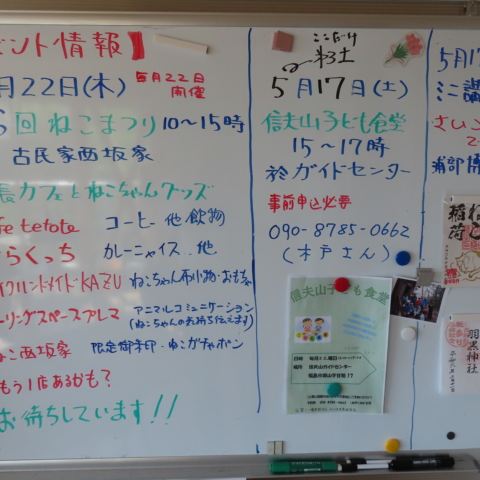 ベント情報】
月22日(木) 毎月22日
開催
回 ねこまつり 10〜15時
古民家西坂家
長カフェとねこちゃんグッズ
fe tetote コーヒー他飲物
らくっち カレー・ナイス.他
イクハンドメイドKAZU ねこちゃん布小物・おもちゃ
ーリングスペースプレマ アニマルコミュニケーション
(ねこちゃんの気持ち伝えます)
ねこ西坂家 限定御朱印・ねこガチャポン
もう1店あるかも?
お待ちしています!!
ここだけ
5月17日(土)
信夫山子ども食堂
15〜17時
於ガイドセンター
事前申込必要
090-8785-0662
(木戸さん)
信夫山子ども食堂
信夫山ガイドセンター
5月17
ミニ講
さいこ
浦部
稲荷
ねこ
羽黒神社